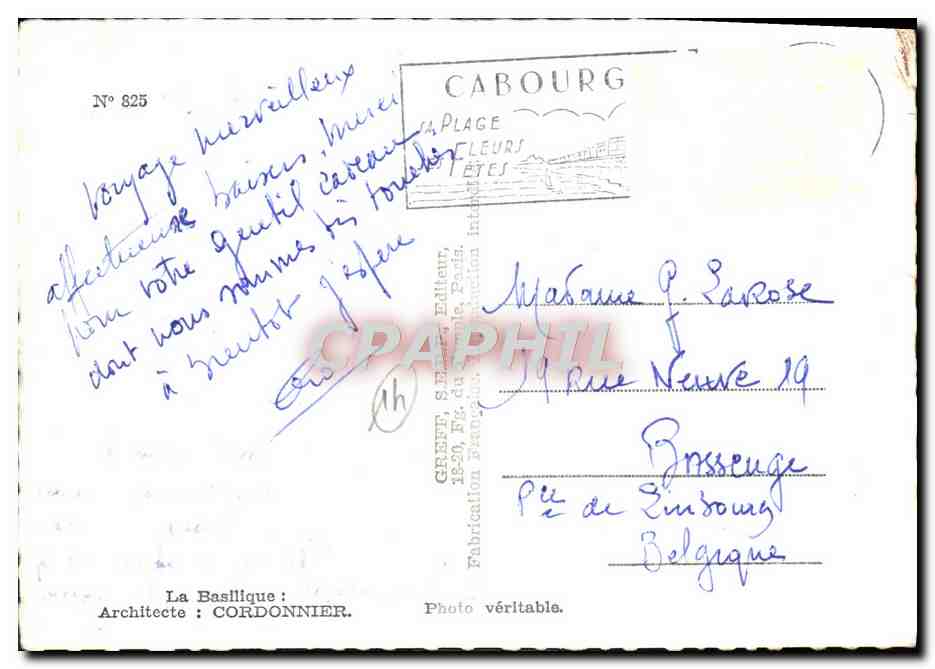 N° 825
voyage merveilleux
affectueux baisers, merci
pour votre gentil cadeau
dont nous sommes très touchés
à bientôt j'espère
1h
CABOURG
SA PLAGE
SES FLEURS
SES FÊTES
GREFF, S.E.D.P., Editeur,
18-20, Fg. du Temple, Paris.
Fabrication Française. Reproduction interdite
CPAPHIL
Madame J. Larose
19 Rue Neuve 19
Bassenge
Pce de Limbourg
Belgique
La Basilique :
Architecte : CORDONNIER.
Photo véritable.